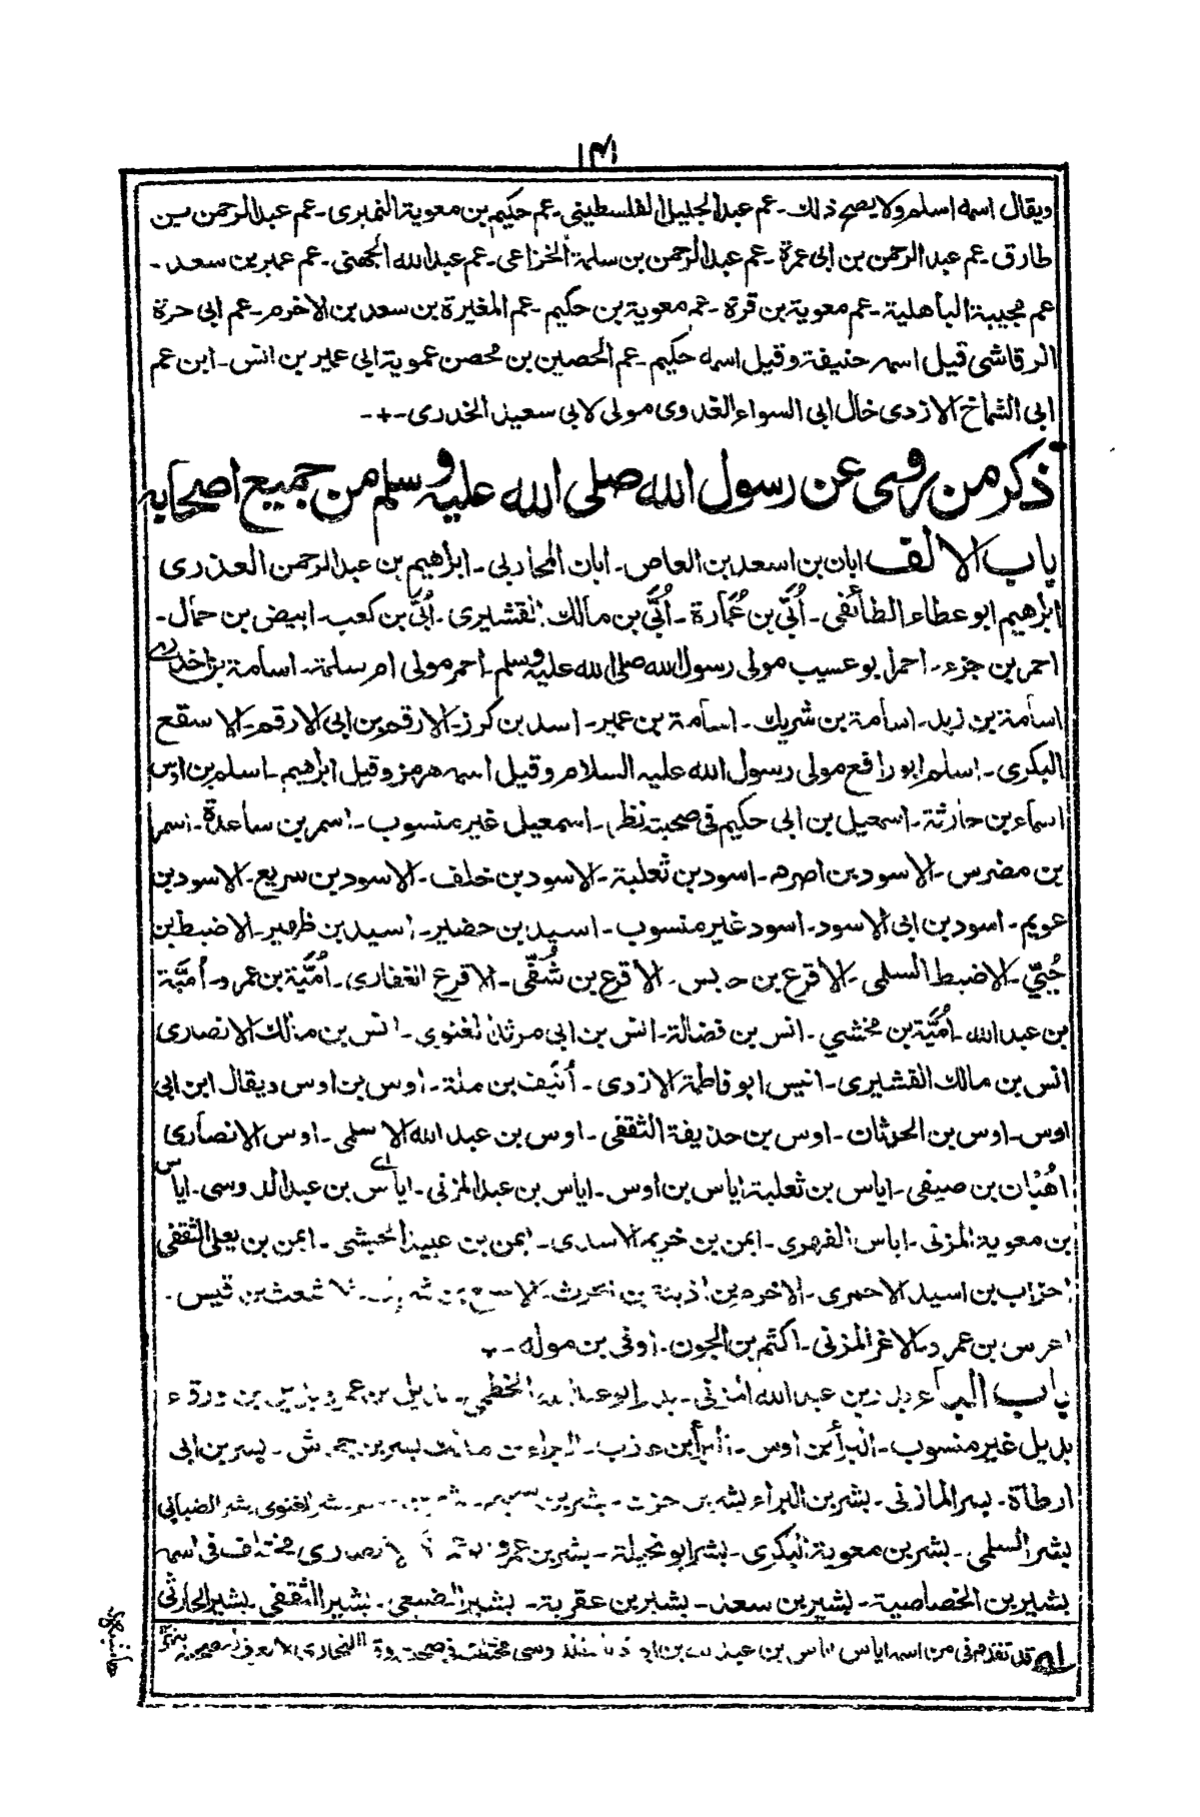 ١٣١
ويقال اسمه اسلم ولا يصح ذلك - عم عبد الجليل الفلسطيني - عم حكيم بن معوية النميري - عم عبد الرحمن بن
طارق - عم عبد الرحمن بن ابي عمرة - عم عبد الرحمن بن سلمة الخزاعي - عم عبد الله الجهني - عم عمير بن سعد -
عم مجيبة الباهلية - عم معوية بن قرة - عم معوية بن حكيم - عم المغيرة بن سعد بن الاخرم - عم ابي حرة
الرقاشي قيل اسمه حنيفة وقيل اسمه حكيم - عم الحصين بن محصن عموية ابي عمير بن انس - ابن عم
ابي الشماخ الازدي خال ابي السواء العدوي مولى لابي سعيد الخدري -+-
ذكر من روى عن رسول الله صلى الله عليه وسلم من جميع اصحابه
باب الالف ابان بن اسعد بن العاص - ابان المحاربي - ابراهيم بن عبد الرحمن العذري
ابراهيم ابو عطاء الطائفي - اُبَيّ بن عُمارة - اُبَيّ بن مالك القشيري - اُبَيّ بن كعب - ابيض بن حمال -
احمر بن جزء - احمر ابو عسيب مولى رسول الله صلى الله عليه وسلم - احمر مولى ام سلمة - اسامة بن اخدري
اسامة بن زيد - اسامة بن شريك - اسامة بن عمير - اسد بن كرز - الارقم بن ابي الارقم - الاسقع
البكري - اسلم ابو رافع مولى رسول الله عليه السلام وقيل اسمه هرمز وقيل ابراهيم - اسلم بن اوس
اسماء بن حارثة - اسمعيل بن ابي حكيم في صحبته نظر - اسمعيل غير منسوب - اسمر بن ساعدة - اسمر
بن مضرس - الاسود بن اصرم - اسود بن ثعلبة - الاسود بن خلف - الاسود بن سريع - الاسود بن
عويم - اسود بن ابي الاسود - اسود غير منسوب - اسيد بن حضير - اسيد بن ظهير - الاضبط بن
حُيَيّ - الاضبط السلمي - الاقرع بن حابس - الاقرع بن شُفَيّ - الاقرع الغفاري - اُمَيّة بن عمرو - اُمَيّة
بن عبد الله - اُمَيّة بن مخشي - انس بن فضالة - انس بن ابي مرثد الغنوي - انس بن مالك الانصاري
انس بن مالك القشيري - انيس ابو فاطمة الازدي - اُنَيف بن ملة - اوس بن اوس ويقال ابن ابي
اوس - اوس بن الحدثان - اوس بن حذيفة الثقفي - اوس بن عبد الله الاسلمي - اوس الانصاري
اُهْبان بن صيفي - اياس بن ثعلبة اياس بن اوس - اياس بن عبد المزني - اياس بن عبد الدوسي - اياس
بن معوية المزني - اياس الفهري - ايمن بن خريم الاسدي - ايمن بن عبيد الحبشي - ايمن بن يعلى الثقفي
احزاب بن اسيد الاحمري - الاخرم بن اذينة بن الحرث - الاشعث بن قيس -
اعرس بن عمرو - الاغر المزني - اكتم بن الجون - اوفى بن موله --
باب الباء بن عبد الله المزني - بدر ابو عبد الله الخطمي - بديل بن عمرو بديل بن ورقاء
بديل غير منسوب - البراء بن اوس - البراء بن عازب - البراء بن مالك بسر بن جحاش - بسر بن ابي
ارطاة - بسر المازني - بشر بن البراء بشر بن حزن - بشر بن سحيم - الغنوي بشر الضبابي
بشر السلمي - بشر بن معوية البكري - بشر ابو نخيلة - بشر بن عمرو الانصاري مختلف في اسمه
بشير بن الخصاصية - بشير بن سعد - بشير بن عقربة - بشير الضبعي - بشير الثقفي - بشير الحارثي
قد تقدم في من اسمه اياس اياس بن عبد الدوسي مختلف في صحبته